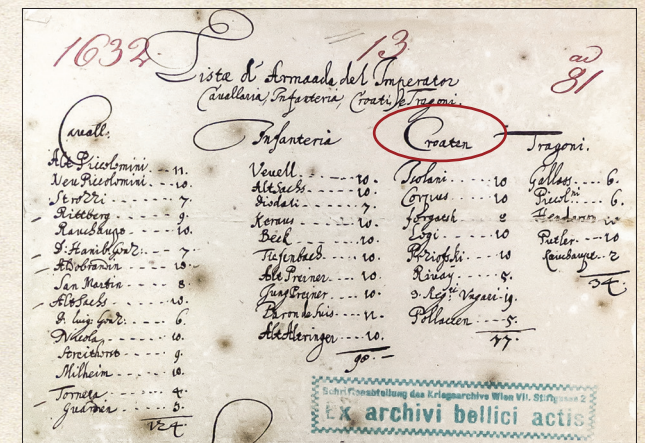 1632 13 ad 81
Lista d' Armaada del Imperator
Cavallaria, Infanteria, Croati, e Tragoni.
Cavall:
Alt Piccolomini -- 11.
Neu Piccolomini -- 10.
Strozzi ---- 7.
Rittberg ---- 9.
Rauchaupt --- 10.
D: Hanib: Gon: --- 7.
Aldobrandin --- 10.
San Martin --- 8.
Alt Sachs ---- 10.
D. luig: Gon: --- 6.
Nicola ---- 10.
Streithorst --- 9.
Milheim ---- 10.
Torneta ---- 4.
Guarden --- 3.
124.
Infanteria
---- 10.
Alt Sachs ---- 10.
Diodati ---- 7.
Keraus ---- 10.
Beck ---- 10.
Tiefenbach --- 10.
Alt Preiner --- 10.
Jung Preiner --- 10.
Baron de suis -- 11.
Alt Altringer --- 10.
98.
Croaten
Isolani --- 10
Corpus --- 10
Forgatsh
Logi --- 10
10
8.
3. Reg:
Pollacken --- 5.
77.
Tragoni.
Gallass --- 6.
6.
Henderson 10
Putler -- 10
Rauchaupt - 2
34.
Schriftenabteilung des Kriegsarchivs Wien VII. Stiftgasse 2
Ex archivi bellici actis